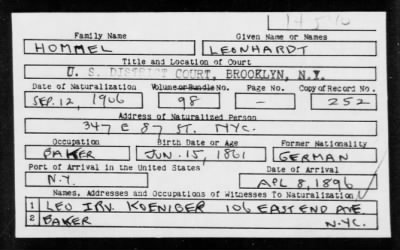 Family Name Given Name or Names
HOMMEL LEONHARDT
Title and Location of Court
U. S. DISTRICT COURT, BROOKLYN, N.Y.
Date of Naturalization Volume or Bundle No. Page No. Copy of Record No.
SEP. 12, 1906 98 — 252
Address of Naturalized Person
347 E 87 ST. NYC.
Occupation Birth Date or Age Former Nationality
BAKER JUN. 15, 1861 GERMAN
Port of Arrival in the United States Date of Arrival
N.Y. APL 8, 1896
Names, Addresses and Occupations of Witnesses To Naturalization
1 LEO IRV. KOENIGER 106 EAST END AVE.
2 BAKER N.Y.C.